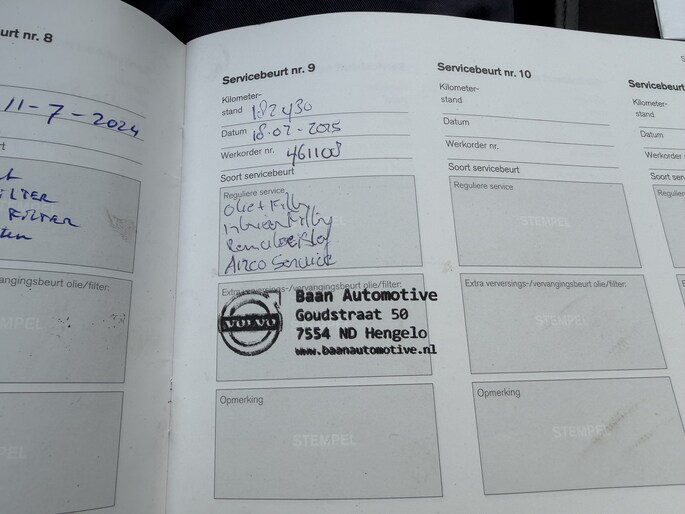 urt nr. 8
11-7-2024
rt
FILTER
FILTER
vangingsbeurt olie/filter:
EL
EL
Servicebeurt nr. 9
Kilometer-
stand 182430
Datum 18-02-2025
Werkorder nr. 461108
Soort servicebeurt
Reguliere service
Olie + Filter
Interieur Filter
Remvloeistof
Airco Service
STEMPEL
Extra verversings-/vervangingsbeurt olie/filter:
VOLVO
Baan Automotive
Goudstraat 50
7554 ND Hengelo
www.baanautomotive.nl
Opmerking
STEMPEL
Servicebeurt nr. 10
Kilometer-
stand
Datum
Werkorder nr.
Soort servicebeurt
Reguliere service
STEMPEL
Extra verversings-/vervangingsbeurt olie/filter:
STEMPEL
Opmerking
STEMPEL
Servicebeu
Kilometer-
stand
Datum
Werkorder n
Soort servic
Reguliere
Extra ver
Opmer